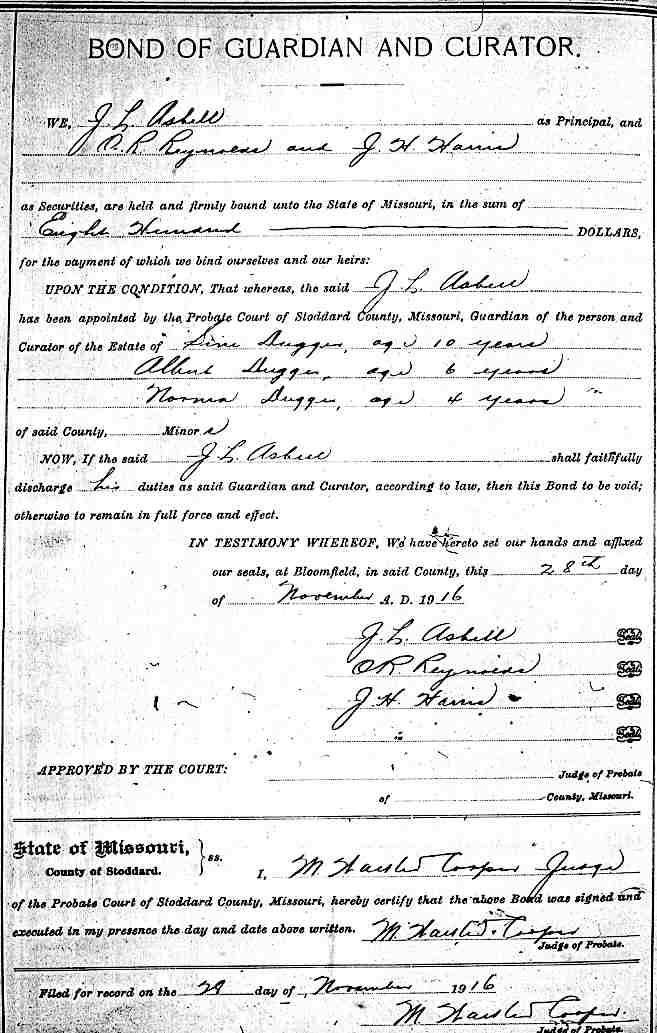 BOND OF GUARDIAN AND CURATOR.
WE, J. L. Asbell as Principal, and
O. R. Reynolds and J. H. Harris
as Securities, are held and firmly bound unto the State of Missouri, in the sum of
Eight Hundred DOLLARS,
for the payment of which we bind ourselves and our heirs:
UPON THE CONDITION, That whereas, the said J. L. Asbell
has been appointed by the Probate Court of Stoddard County, Missouri, Guardian of the person and
Curator of the Estate of Dugger, age 10 years
Albert Dugger, age 6 years
Norma Dugger, age 4 years "
of said County, Minor s
NOW, If the said J. L. Asbell shall faithfully
discharge his duties as said Guardian and Curator, according to law, then this Bond to be void;
otherwise to remain in full force and effect.
IN TESTIMONY WHEREOF, We have hereto set our hands and affixed
our seals, at Bloomfield, in said County, this 28th day
of November A. D. 1916
J. L. Asbell Seal
O. R. Reynolds Seal
J. H. Harris Seal
Seal
APPROVED BY THE COURT:
Judge of Probate
of County, Missouri.
State of Missouri,
County of Stoddard. } ss. I, M. Cooper Judge
of the Probate Court of Stoddard County, Missouri, hereby certify that the above Bond was signed and
executed in my presence the day and date above written. M. Cooper
Judge of Probate.
Filed for record on the 29 day of November 1916
M. Cooper.
Judge of Probate.